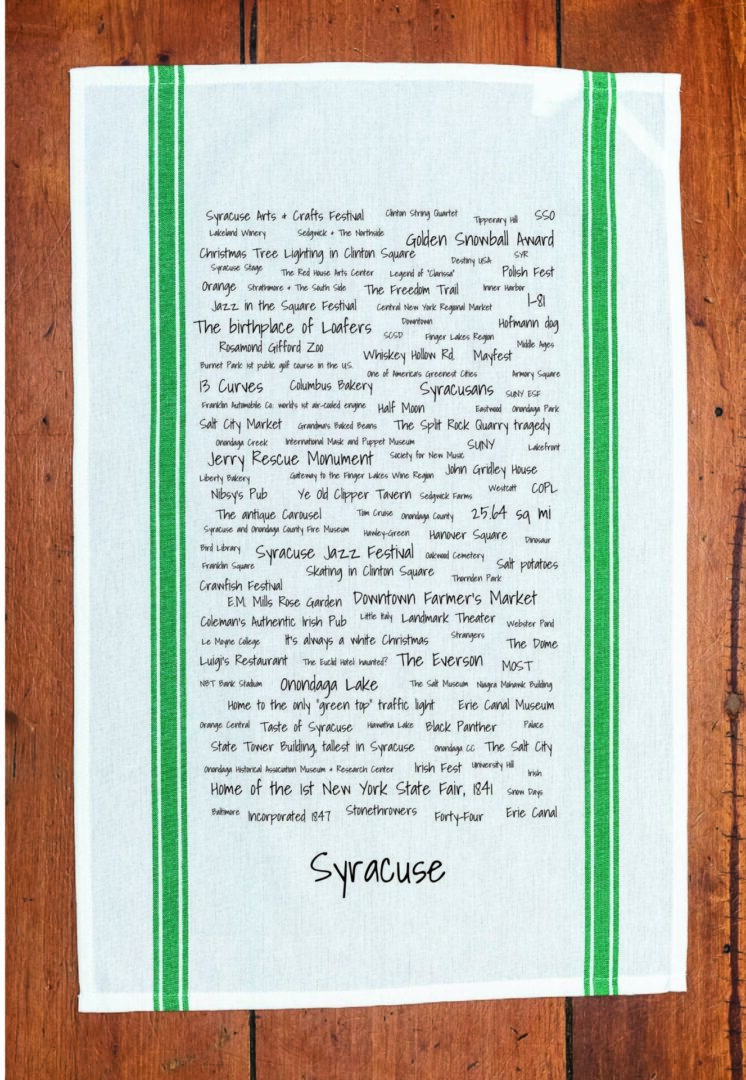 Syracuse Arts & Crafts Festival Clinton String Quartet Tipperary Hill SSO
Lakeland Winery Sedgwick & The Northside Golden Snowball Award
Christmas Tree Lighting in Clinton Square Destiny USA SYR
Syracuse Stage The Red House Arts Center Legend of "Clarissa" Polish Fest
Orange Strathmore & The South Side The Freedom Trail Inner Harbor
Jazz in the Square Festival Central New York Regional Market I-81
The birthplace of Loafers Downtown Hofmann dog
SCSD Finger Lakes Region
Rosamond Gifford Zoo Whiskey Hollow Rd. Mayfest Middle Ages
Burnet Park 1st public golf course in the U.S. One of America's Greenest Cities Armory Square
13 Curves Columbus Bakery Syracusans SUNY ESF
Franklin Automobile Co: world's 1st air-cooled engine Half Moon Eastwood Onondaga Park
Salt City Market Grandma's Baked Beans The Split Rock Quarry tragedy
Onondaga Creek International Mask and Puppet Museum SUNY Lakefront
Jerry Rescue Monument Society for New Music
Liberty Bakery Gateway to the Finger Lakes Wine Region John Gridley House
Nibsy's Pub Ye Old Clipper Tavern Sedgwick Farms Westcott COPL
The antique Carousel Tom Cruise Onondaga County 25.64 sq mi
Syracuse and Onondaga County Fire Museum Hawley-Green Hanover Square Dinosaur
Bird Library Syracuse Jazz Festival Oakwood Cemetery
Franklin Square Skating in Clinton Square Salt potatoes
Crawfish Festival Thornden Park
E.M. Mills Rose Garden Downtown Farmer's Market
Coleman's Authentic Irish Pub Little Italy Landmark Theater Webster Pond
Le Moyne College It's always a white Christmas Strangers The Dome
Luigi's Restaurant The Euclid Hotel haunted? The Everson MOST
NBT Bank Stadium Onondaga Lake The Salt Museum Niagra Mohawk Building
Home to the only "green top" traffic light Erie Canal Museum
Orange Central Taste of Syracuse Hiawatha Lake Black Panther Palace
State Tower Building, tallest in Syracuse Onondaga CC The Salt City
Onondaga Historical Association Museum & Research Center Irish Fest University Hill Irish
Home of the 1st New York State Fair, 1841 Snow Days
Baltimore Incorporated 1847 Stonethrowers Forty-Four Erie Canal
Syracuse